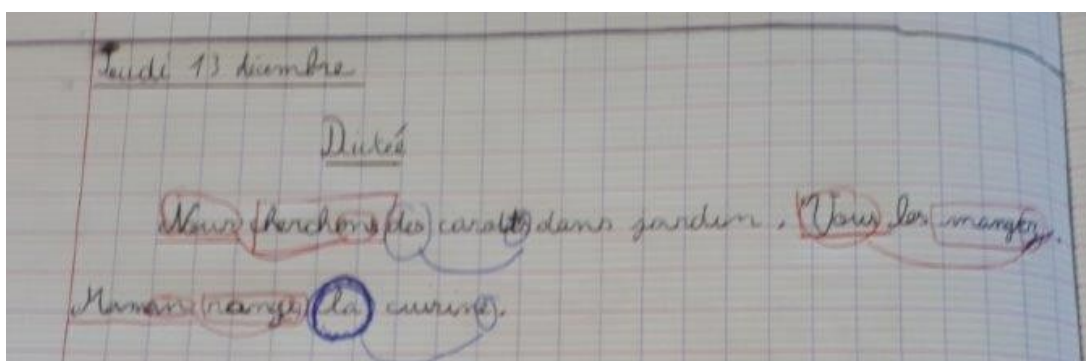 Jeudi 13 décembre
Dictée
Nous cherchons des carottes dans jardin. Vous les mangez.
Maman range la cuisine.